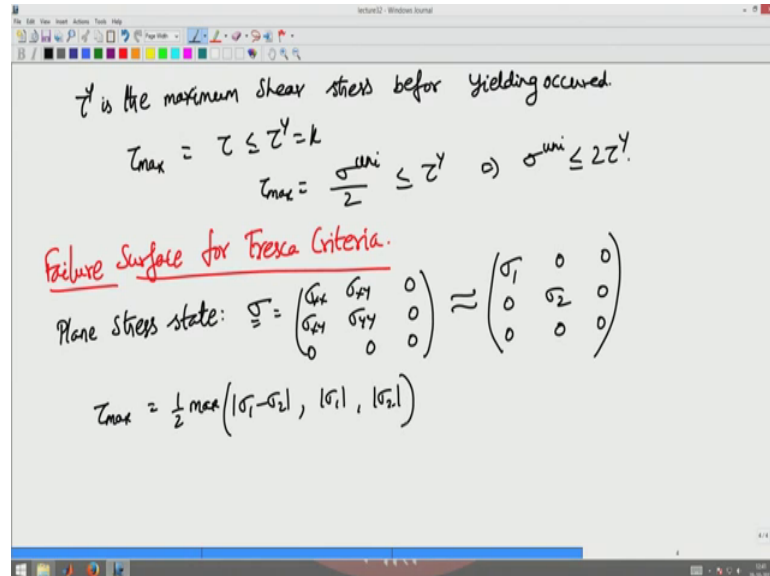 lecture32 - Windows Journal
File Edit View Insert Actions Tools Help
Page Width
B I
τ^Y is the maximum shear stress befor yielding occured.
τmax = τ ≤ τ^Y = k
τmax = σ^uni / 2 ≤ τ^Y ⇒ σ^uni ≤ 2τ^Y.
Failure Surface for Tresca Criteria.
Plane stress state: σ = (σxx σxy 0; σxy σyy 0; 0 0 0) ≈ (σ1 0 0; 0 σ2 0; 0 0 0)
τmax = 1/2 max(|σ1-σ2|, |σ1|, |σ2|)
4/4
4